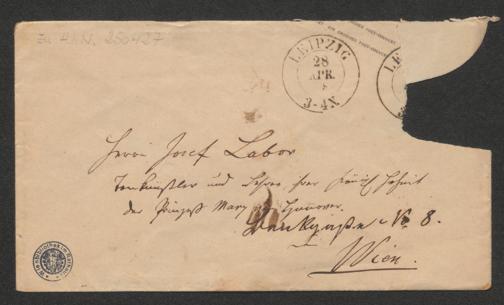 Zu H.I.N. 250427
LEIPZIG
28
APR.
3-4X
LE
Herrn Josef Labor
Tonkünstler und Lehrer ihrer königl Hoheit
der Prinzeß Mary von Hannover.
No 8.
Wien.